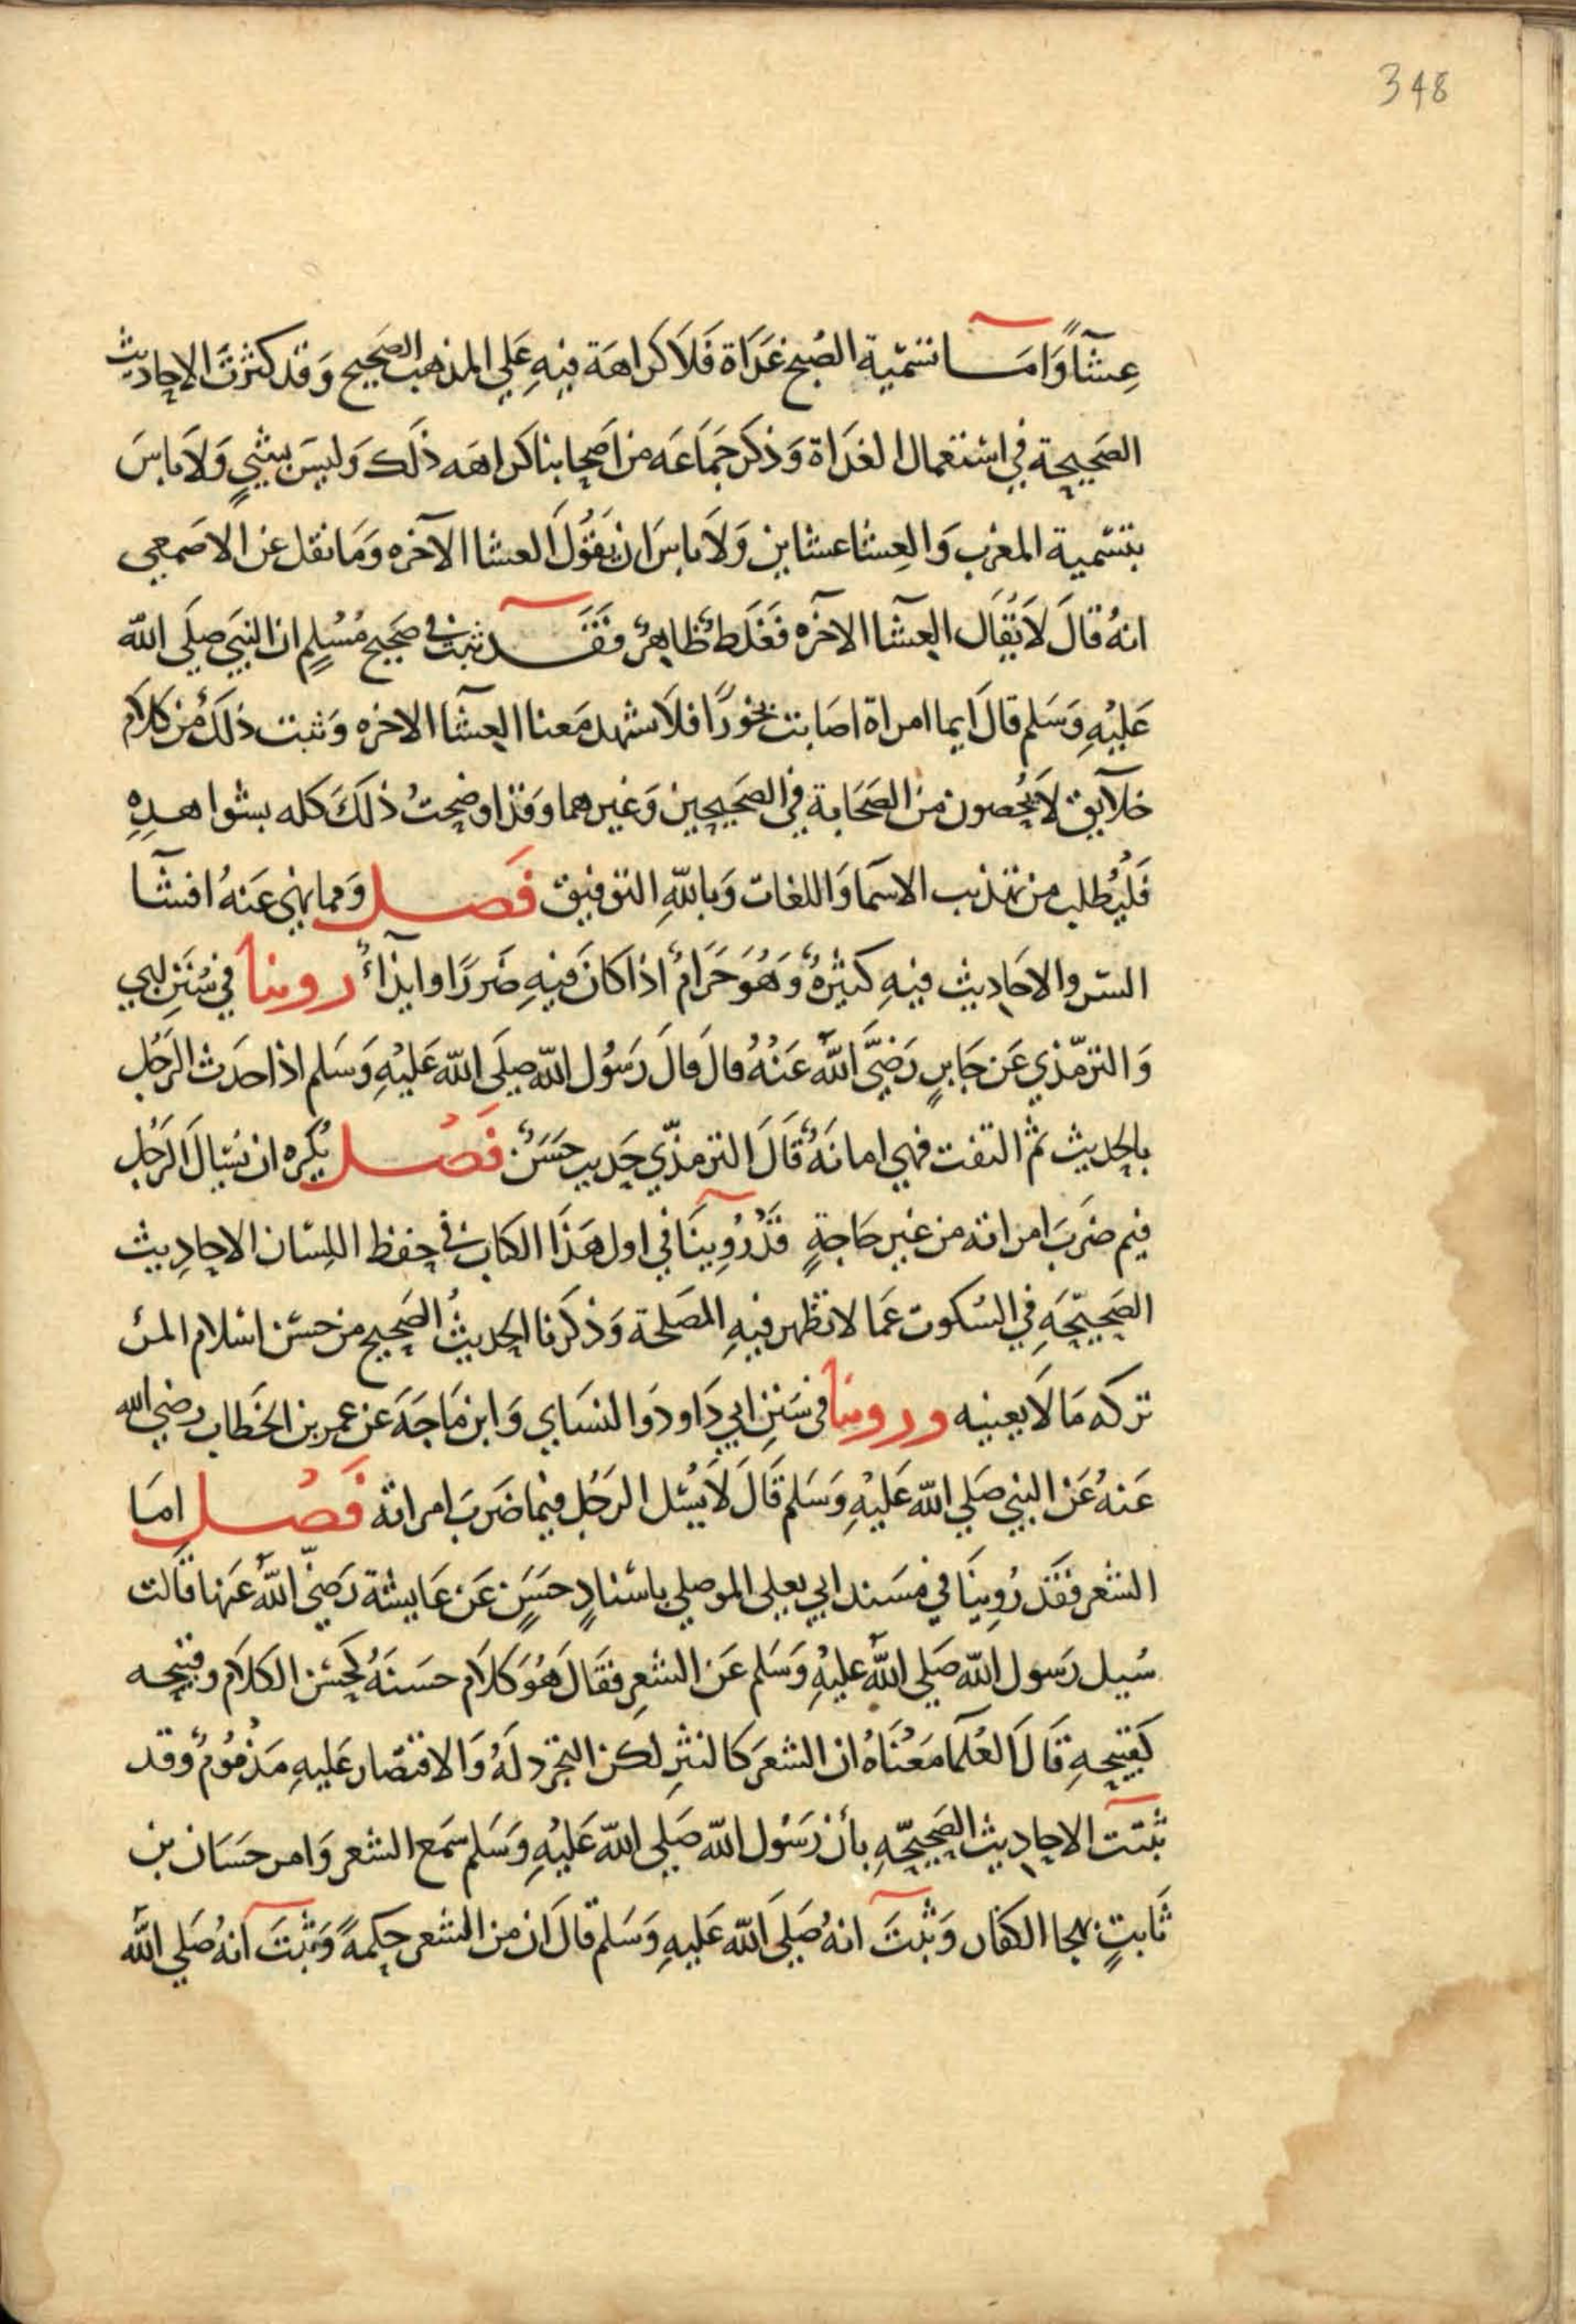 348
عِشآً وَامَا تسَمية الصُبح غدَاة فَلاَ كَراهَة فيهِ عَلى المذهب الصَحِيح وَقد كثرتَ الاحاديث
الصَحيحة في استعمال الغدَاة وَذكر جَمَاعَه من اَصحابنا كَراهَه ذلك وَليسَ بشيٍ وَلاَ باسَ
بتسَمية المغرب وَالعِشا عشاين وَلاَ باسَ ان يَقُولَ العشا الآخره وَمَا نقل عن الاصَمعي
انهُ قالَ لاَ يُقَال العِشآ الآخره فَغلَطٌ ظاهِرٌ فَقَد ثبت في صَحيح مُسْلِمٍ ان النبَي صلَى الله
عَليْهِ وَسَلم قالَ ايما امراة اصَابت بخورًا فلاَ تشهد مَعنا العِشآ الاخره وَثبت ذلَكَ من كلاَم
خلآيق لاَ يُحْصون منَ الصَحَابة في الصَحيحين وَغيرهما وَقد اوضحتُ ذلَكَ كله بشواهدِهِ
فَليُطلب من تهذيب الاسمَا وَاللغات وَبالله التوفيق فَصل وَمما ينهى عَنهُ افشآ
السّر والاحَادِيث فيهِ كَثيرْةٌ وَهُوَ حَرَامٌ اذا كانَ فيهِ ضَررًا وايذآءٌ روينا في سُنَنِ ابي
وَالترمّذي عَن جَابرٍ رَضيَّ اللهُ عَنْهُ قالَ قالَ رَسُول الله صلَى الله عَليْهِ وَسَلم اذا حَدث الرَجُل
بالحديث ثم التفت فهي امانَةٌ قَالَ الترمذّي حَديب حَسَنٌ فَصْل يُكره ان يُسَالَ الرَجُل
فيم ضَربَ امراته من غير حَاجةٍ قدْ رُوِينَا في اول هَذا الكتاب في حِفظ اللِسَان الاحادِيث
الصَحِيحَه في السُكوت عَما لا تظهر فيهِ المصَلحة وَذكَرنا الحديثُ الصَحيح من حسْن اسْلام المرْ
تركه مَا لاَ يعنيه وروينَا في سَننِ ابي دَاود وَالنسَاي وَابن مَاجَهَ عن عمر بن الخطاب رضي الله
عَنهُ عَن النبي صَلي الله عَليْهِ وَسَلم قَالَ لاَ يُسْئل الرَجُل فيما ضَربَ امراته فَصْل امَا
الشعر فقَد رُوِينَا في مسَند ابي يعلى الموصلي باسْنادٍ حَسَنٍ عَن عَايشة رَضيّ اللهُ عَنها قَالت
سُيل رَسول الله صَلي اللهُ عَليْهِ وَسَلم عَن الشعرِ فقَال هُوَ كلاَم حسَنهُ كحسْن الكلاَم وقبيحه
كقبيحهِ قَالَ العُلمَا مَعْنَاهُ ان الشعرَ كالنثرِ لكن التجرد لَهُ وَالاقتصَار عَليهِ مَذمُومٌ وقد
ثبتت الاحادِيث الصَحِيحّهِ بأن رَسُول الله صَلي الله عَليْهِ وَسَلم سَمع الشعر وَامر حَسَان بن
ثَابتٍ بهجا الكفار وَثبتَ انهُ صَلَي الله عَليهِ وَسَلم قالَ ان من الشعر حِكمةً وَثبتَ انهُ صَلي الله